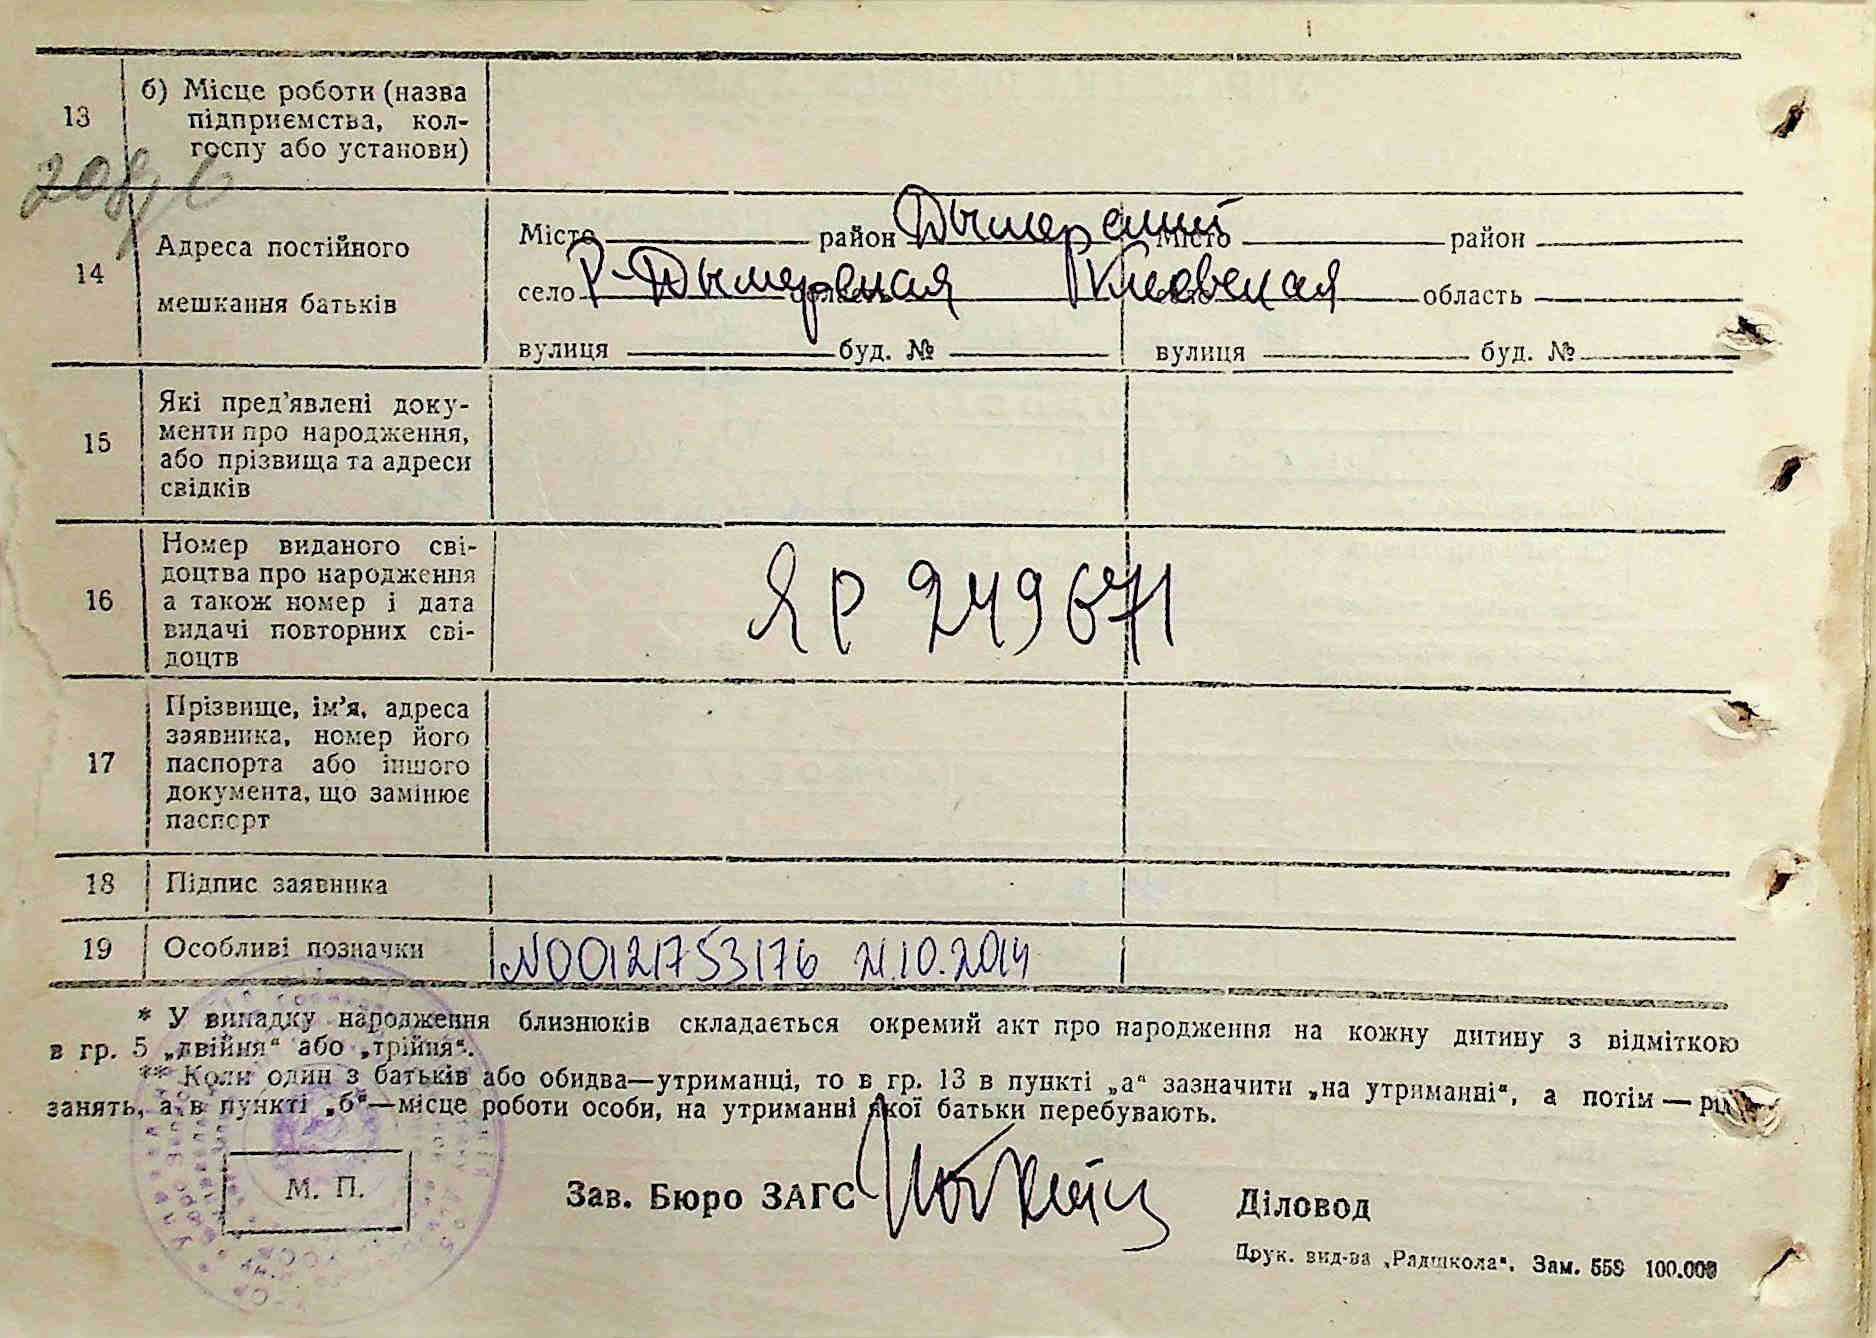 13
б) Місце роботи (назва
підприємства, кол-
госпу або установи)
208
14
Адреса постійного
мешкання батьків
Місто район Дымерский Місто район
село Р-Дымерская область Киевская область
вулиця буд. № вулиця буд. №
15
Які пред'явлені доку-
менти про народження,
або прізвища та адреси
свідків
16
Номер виданого сві-
доцтва про народження
а також номер і дата
видачі повторних сві-
доцтв
ЯР 249671
17
Прізвище, ім'я, адреса
заявника, номер його
паспорта або іншого
документа, що замінює
паспорт
18
Підпис заявника
19
Особливі позначки
N00121753176 21.10.2014
* У випадку народження близнюків складається окремий акт про народження на кожну дитину з відміткою
в гр. 5 „двійня“ або „трійня“.
** Коли один з батьків або обидва—утриманці, то в гр. 13 в пункті „а“ зазначити „на утриманні“, а потім — рід
занять, а в пункті „б“—місце роботи особи, на утриманні якої батьки перебувають.
М. П.
Зав. Бюро ЗАГС
Діловод
Друк. вид-ва „Радшкола“. Зам. 558 100.000